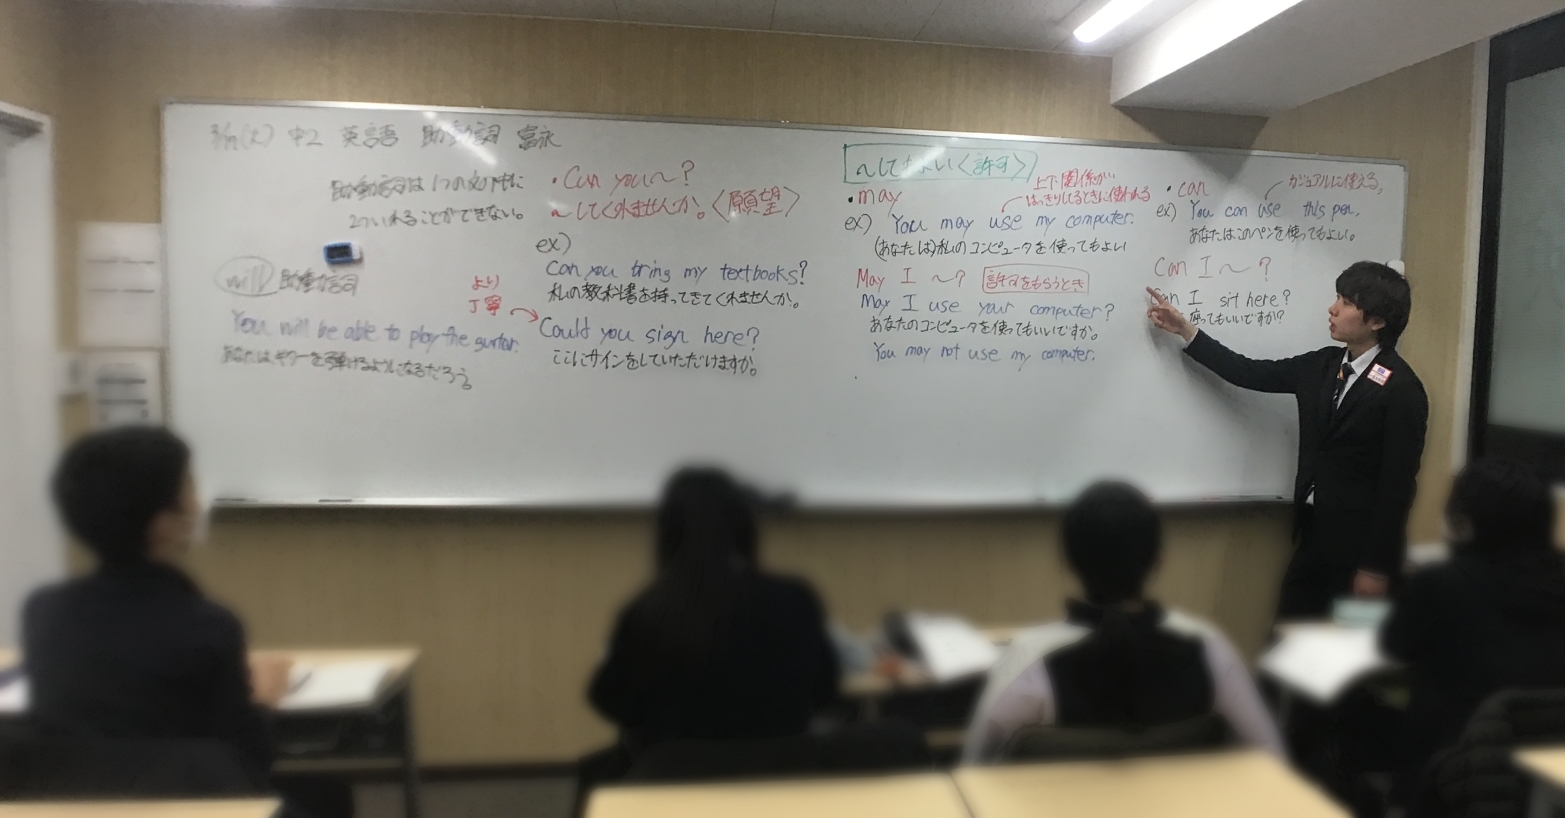 中2 英語 助動詞 富永
助動詞は1つの文の中に
2ついれることができない。
will 助動詞
You will be able to play the guitar.
あなたはギターを弾けるようになるだろう
・Can you〜?
〜してくれませんか。〈願望〉
ex)
Can you bring my textbooks?
私の教科書を持ってきてくれませんか。
より
丁寧
Could you sign here?
ここにサインをしていただけますか。
〜してもよい〈許可〉
・may
上下関係が
はっきりしてるときに使われる
ex) You may use my computer.
(あなたは)私のコンピュータを使ってもよい
May I 〜? 許可をもらうとき
May I use your computer?
あなたのコンピュータを使ってもいいですか。
You may not use my computer.
・can
カジュアルに使える。
ex) You can use this pen.
あなたはこのペンを使ってもよい。
Can I 〜?
Can I sit here?
座ってもいいですか?